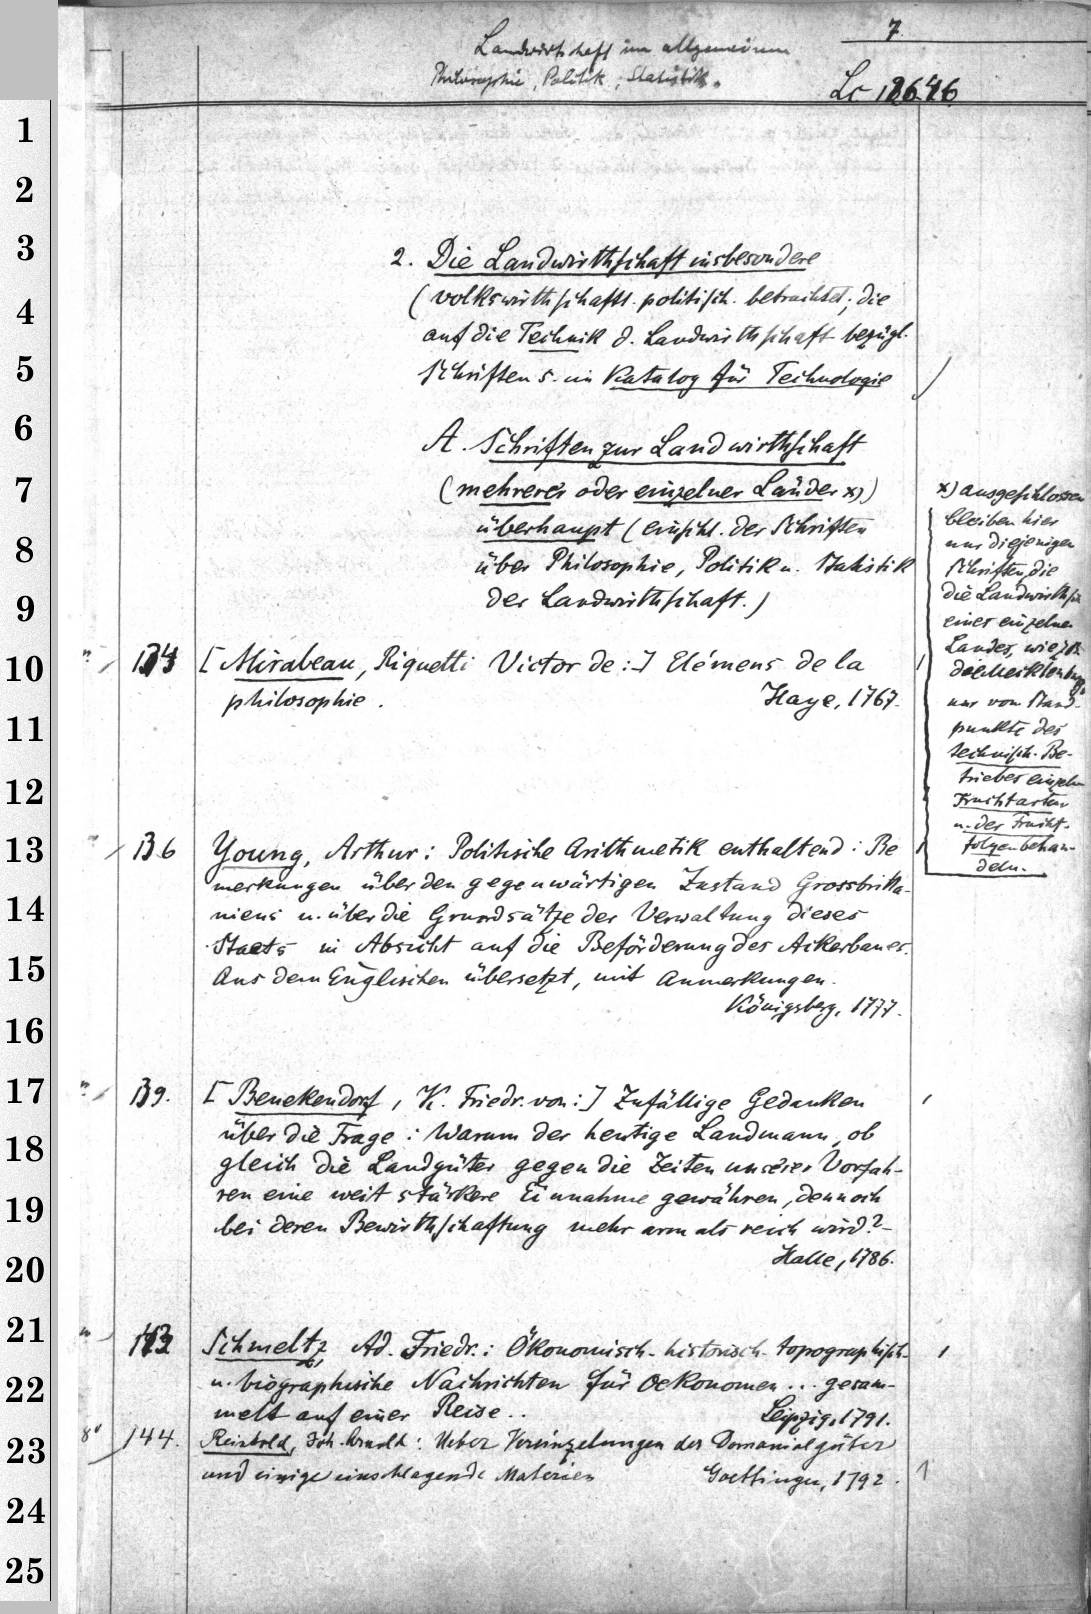 7.
Landwirtschaft im allgemeinen
Philosophie, Politik, Statistik.
Lc
1
2
3
4
5
6
7
8
9
10
11
12
13
14
15
16
17
18
19
20
21
22
23
24
25
2. Die Landwirthschaft insbesondere
(volkswirthschaftl. politisch. betrachtet; die
auf die Technik d. Landwirthschaft bezügl.
Schriften s. im Katalog für Technologie
A. Schriften zur Landwirthschaft
(mehrerer oder einzelner Länder x))
überhaupt (einschl. der Schriften
über Philosophie, Politik u. Statistik
der Landwirthschaft.)
x) ausgeschlossen
bleiben hier
nur diejenigen
Schriften, die
die Landwirthsch
eines einzelnen
Landes, wie z.B.
nur vom Stand-
punkte des
technisch. Be-
triebes einzeln
Fruchtarten
u. der Frucht-
folgen behan-
deln.
[Mirabeau, Riquetti Victor de:] Elémens de la
philosophie. Haye, 1767.
136 Young, Arthur: Politische Arithmetik enthaltend: Be
merkungen über den gegenwärtigen Zustand Grossbritta-
niens u. über die Grundsätze der Verwaltung dieses
Staats in Absicht auf die Beförderung des Ackerbaues.
Aus dem Englischen übersetzt, mit Anmerkungen.
Königsberg, 1777.
139. [Benekendorf, K. Friedr. von:] Zufällige Gedanken
über die Frage: Warum der heutige Landmann, ob
gleich die Landgüter gegen die Zeiten unserer Vorfah-
ren eine weit stärkere Einnahme gewähren, dennoch
bei deren Bewirthschaftung mehr arm als reich wird?-
Halle, 1786.
Schmeltz, Ad. Friedr.: Ökonomisch-historisch-topographisch-
u. biographische Nachrichten für Oekonomen... gesam-
melt auf einer Reise.. Leipzig, 1791.
8° 144. Reinhold, Joh. Arnold: Ueber Vereinzelungen der Domanialgüter
und einige einschlagende Materien Goettingen, 1792.